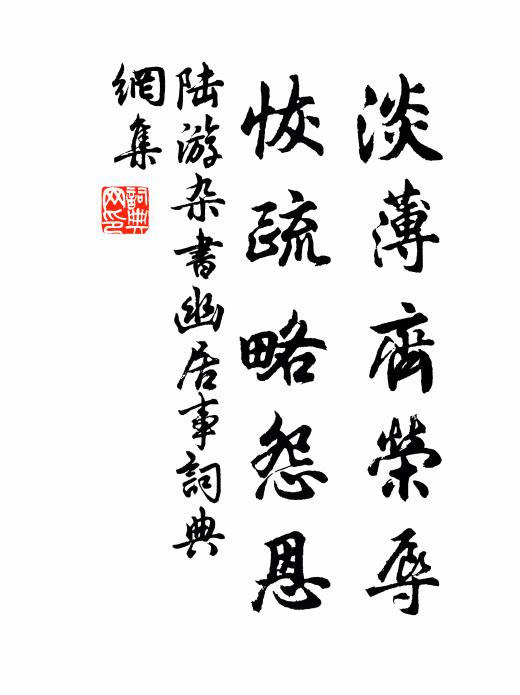 淡薄齊榮辱
恢疏略怨恩
陆游杂書幽居事詞典
網集
詞典网印